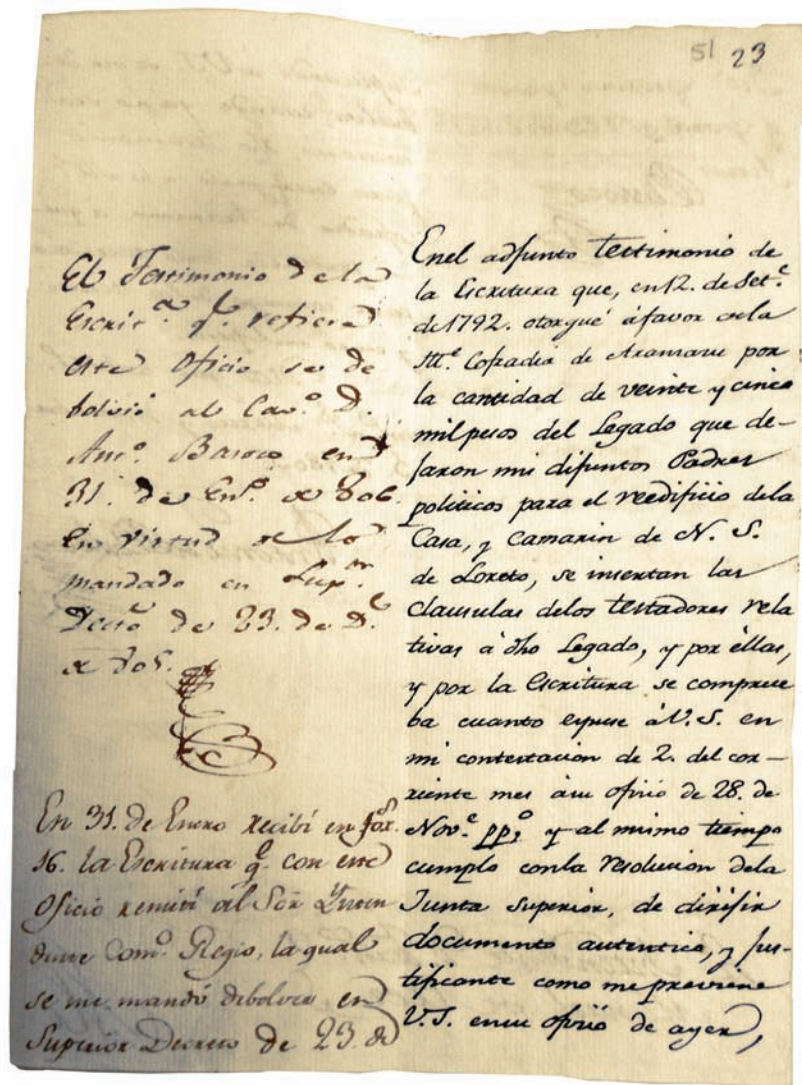 51 23
El Testimonio de la
Escrit.ª q.ᵉ refiere
este Oficio se de
bolvió al Cav.º D.
Ant.º Basoco en
31. de En.º de 806
en virtud de lo
mandado en Sup.ᵒʳ
Decrº de 23. de D.ᵉ
de 805.
En 31. de Enero recibí en fox.ˢ
16. la Escritura q.ᵉ con este
Oficio remití al Sōr Ynten
dente Com.º Regio, la qual
se me mandó debolver en
Superior Decreto de 23. de
Enel adjunto testimonio de
la Escritura que, en 12. de Set.ᵉ
de 1792. otorgué áfavor dela
Itt.ᵉ Cofradia de Aranzazu por
la cantidad de veinte y cinco
mil pesos del Legado que de-
jaron mis difuntos Padres
politicos para el reedificio dela
Casa, y Camarin de N. S.
de Loreto, se insertan las
clausulas delos testadores rela
tivas á dho Legado, y por éllas,
y por la Escritura se comprue
ba cuanto expuse á V. S. en
mi contestacion de 2. del cor-
riente mes ásu oficio de 28. de
Nov.ᵉ pp.º y al mismo tiempo
cumplo conla resolucion dela
Junta Superior, de dirijir
documento autentico, y jus-
tificante como me previene
V. S. ensu oficio de ayer,